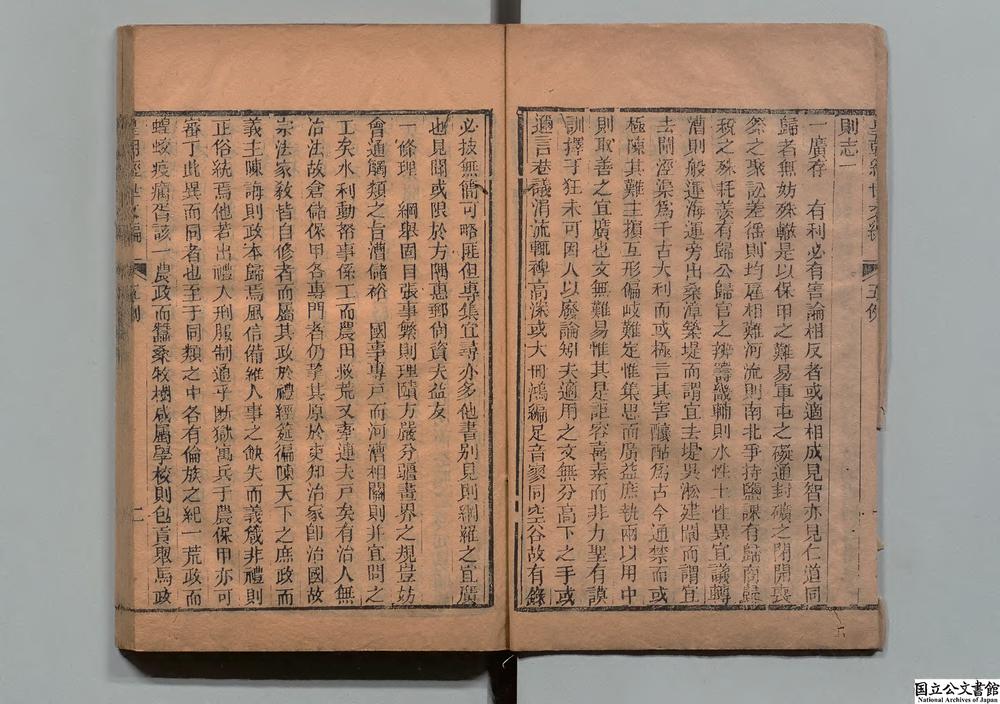 則志一
一廣存　有利必有害論相反者或適相成見智亦見仁道同
歸者無妨殊轍是以保甲之難易軍屯之礙通封礦之閉開喪
祭之聚訟差徭則均雇相難河流則南北爭持鹽課有歸商歸
稅之殊耗羨有歸公歸官之辨籌畿輔則水性土性異宜議轉
漕則般運海運旁出桑漳築堤而謂宜去堤吳淞建閘而謂宜
去閘涇渠爲千古大利而或極言其害釀酤爲古今通禁而或
極陳其難主擯互形偏岐難定惟集思而廣益庶執兩以用中
則取善之宜廣也文無難易惟其是詎容喜素而非力聖有謨
訓擇于狂未可因人以廢論矧夫適用之文無分高下之手或
邇言巷議涓流輒裨高深或大冊鴻編足音寥同空谷故有錄
必披無簡可略匪但專集宜尋亦多他書別見則網羅之宜廣
也見聞或限於方隅惠郵尚資夫益友
一條理　綱舉固目張事繁則理賾方嚴分疆畫界之規豈妨
會通觸類之旨漕儲裕　國事專戶而河漕相關則幷宜問之
工矣水利動帑事係工而農田救荒又牽連夫戶矣有治人無
治法故倉儲保甲各專門者仍挈其原於吏知治家卽治國故
宗法家敎皆自修者而屬其政於禮經筵徧陳天下之庶政而
義主陳誨則政本歸焉風信備維人事之缺失而義箴非禮則
正俗統焉他若出禮入刑服制通乎斷獄寓兵于農保甲亦可
審丁此異而同者也至于同類之中各有倫族之紀一荒政而
蝗蛟疫癘胥該一農政而蠶桑牧樹咸屬學校則包貢取馬政
皇朝經世文編
五例
二
國立公文書館
National Archives of Japan